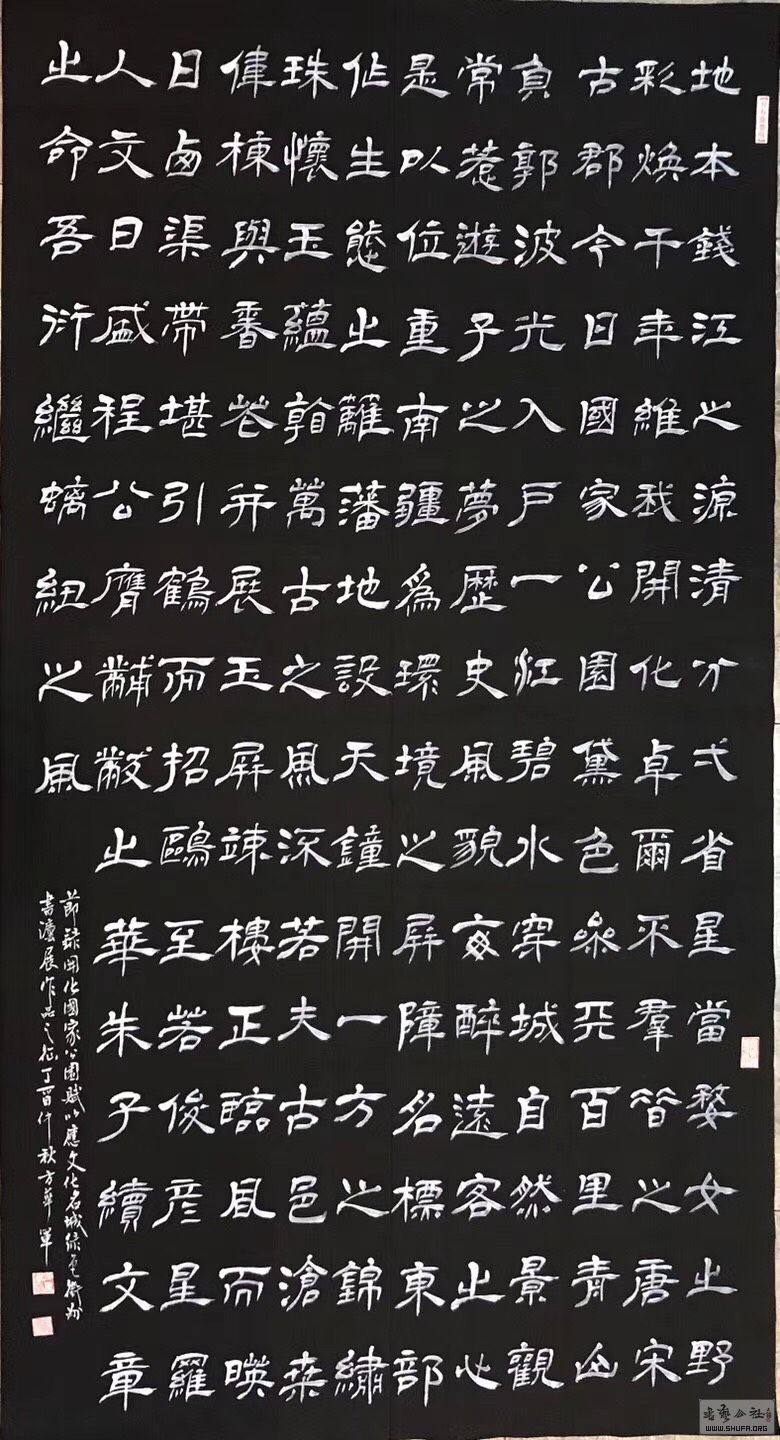 地本錢江之源清分弌省星當婺女之野
彩煥千年維我開化卓爾不羣之唐宋
古郡今日國家公園黛色參天百里青山
負郭波光入戶一江碧水穿城自然景觀
常惹遊子之夢歷史風貌醉遠客之心
是以位重南疆為環境之屏障名標東部
作生態之籬藩地設天鐘開一方之錦繡
珠懷玉蘊翰萬古之風深若夫古邑滄桑
偉棟與香花并展玉屏竦樓正臨風而暎
日渠帶堪引鶴而招鷗至若俊彥星羅
人文日盛程公膺黼黻之華朱子續文章
之命吾衍繼紐之風
節錄開化國家公園賦以應文化名城綠色衢州
書法展作品之徵丁酉仲秋方華軍
书艺公社
WWW.SHUFA.ORG